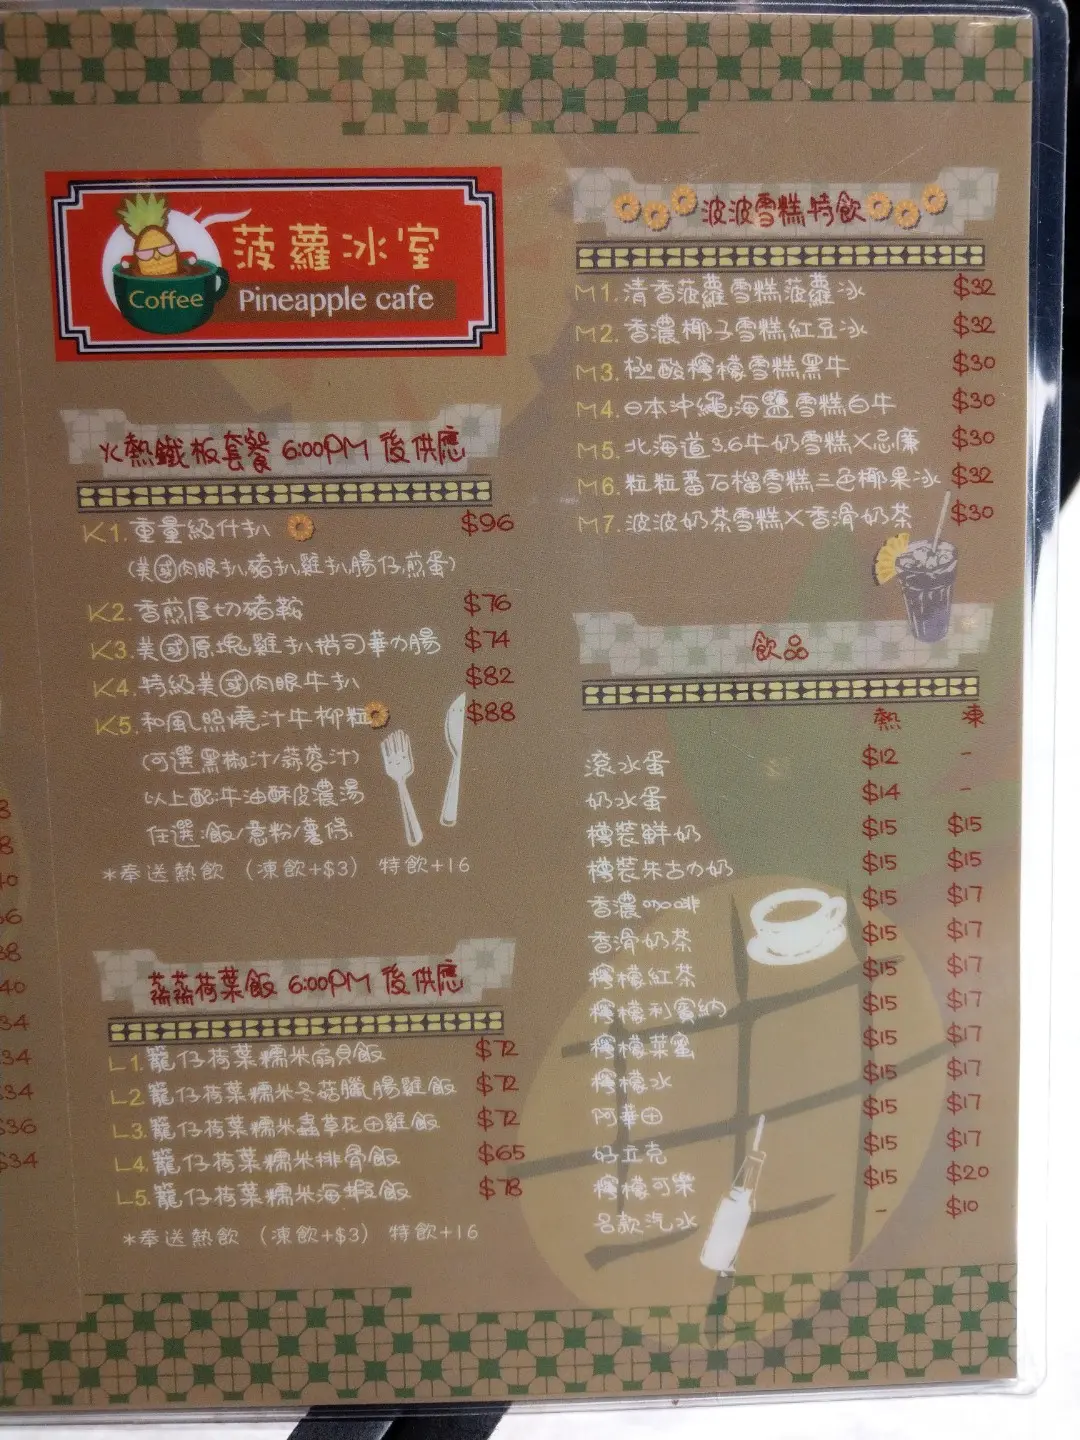 菠蘿冰室
Coffee
Pineapple cafe
火熱鐵板套餐 6:00PM 後供應
K1. 重量級什扒 $96
(美國肉眼扒,豬扒,雞扒,腸仔,煎蛋)
K2. 香煎厚切豬鞍 $76
K3. 美國原塊雞扒拼司華力腸 $74
K4. 特級美國肉眼牛扒 $82
K5. 和風照燒汁牛柳粒 $88
(可選黑椒汁/蒜蓉汁)
以上配:牛油酥皮濃湯
任選:飯/意粉/薯條
*奉送熱飲 (凍飲+$3) 特飲+16
蒸蒸荷葉飯 6:00PM 後供應
L1. 籠仔荷葉糯米扇貝飯 $72
L2. 籠仔荷葉糯米冬菇臘腸雞飯 $72
L3. 籠仔荷葉糯米蟲草花田雞飯 $72
L4. 籠仔荷葉糯米排骨飯 $65
L5. 籠仔荷葉糯米海蝦飯 $78
*奉送熱飲 (凍飲+$3) 特飲+16
波波雪糕特飲
M1. 清香菠蘿雪糕菠蘿冰 $32
M2. 香濃椰子雪糕紅豆冰 $32
M3. 極酸檸檬雪糕黑牛 $30
M4. 日本沖繩海鹽雪糕白牛 $30
M5. 北海道3.6牛奶雪糕X忌廉 $30
M6. 粒粒番石榴雪糕三色椰果冰 $32
M7. 波波奶茶雪糕X香滑奶茶 $30
飲品
熱 凍
滾水蛋 $12 -
奶水蛋 $14 -
樽裝鮮奶 $15 $15
樽裝朱古力奶 $15 $15
香濃咖啡 $15 $17
香滑奶茶 $15 $17
檸檬紅茶 $15 $17
檸檬利賓納 $15 $17
檸檬菜蜜 $15 $17
檸檬水 $15 $17
阿華田 $15 $17
好立克 $15 $17
檸檬可樂 $15 $20
各款汽水 - $10